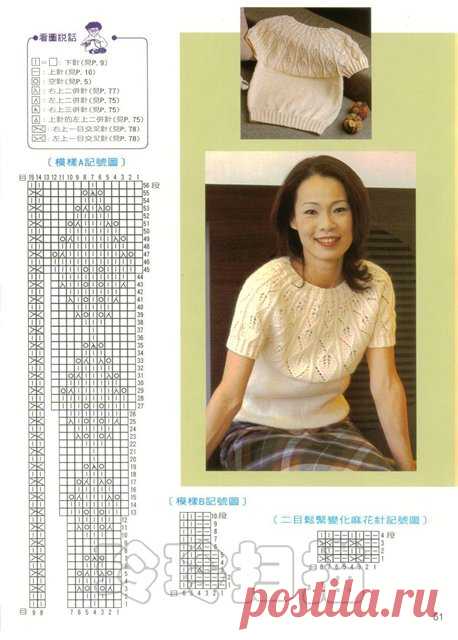 看圖說話
｜=□：下針(見P. 9)
－：上針(見P. 10)
○：空針(見P. 5)
：右上二併針(見P. 77)
：左上二併針(見P. 75)
：右上三併針(見P. 75)
：上針的左上二併針(見P. 75)
：右上一目交叉針(見P. 78)
：左上一目交叉針(見P. 78)
〔模樣A記號圖〕
目 15 14 13 12 11 10 9 8 7 6 5 4 3 2 1
56 段
55
53
51
50
49
47
46
45
44
43
41
40
39
35
33
31
30
29
28
27
26
25
23
21
20
19
17
15
14
13
12
11
10
9
7
5
3
2
1
目 9 8 7 6 5 4 3 2 1
〔模樣B記號圖〕
10 段
〔二目鬆緊變化麻花針記號圖〕
4 段
3
2
1
目 8 7 6 5 4 3 2 1
postila.ru
61